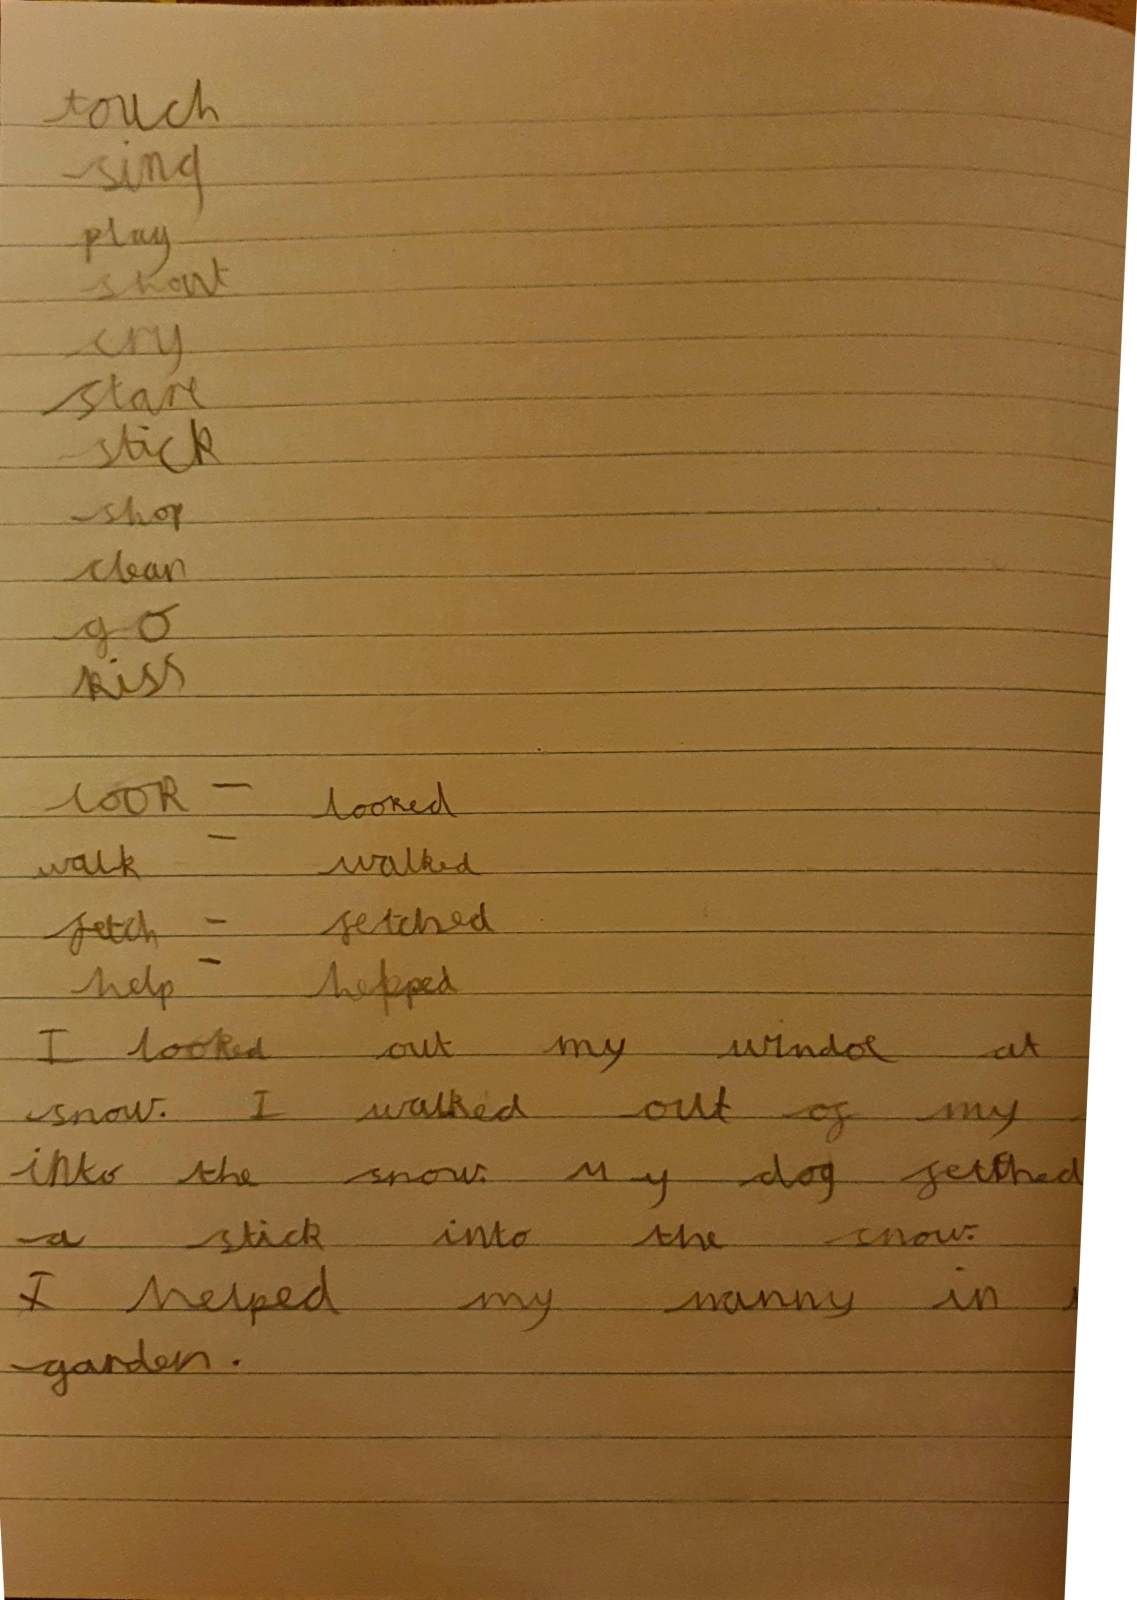 touch
sing
play
shout
cry
stare
stick
shop
clean
go
kiss
look - looked
walk - walked
fetch - fetched
help - helpped
I looked out my window at
snow. I walked out of my
into the snow. My dog fetched
a stick into the snow.
I helped my nanny in
garden.